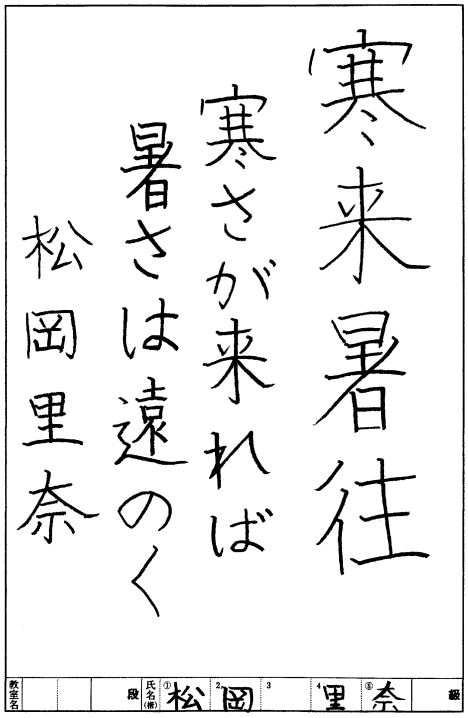 寒来暑往
寒さが来れば
暑さは遠のく
松岡里奈
教室名 段 氏名(楷) ①松 2岡 3 4里 ⑤奈 級